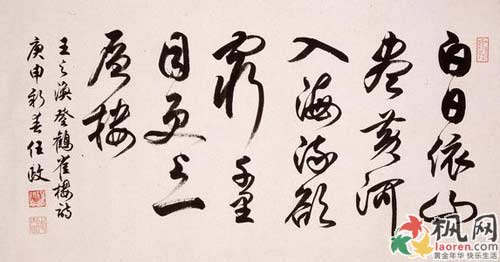 白日依山
盡黄河
入海流欲
窮千里
目更上一
層樓
王之渙登鸛雀樓詩
庚申新春任政
枫网
laoren.com
黄金年华 快乐生活